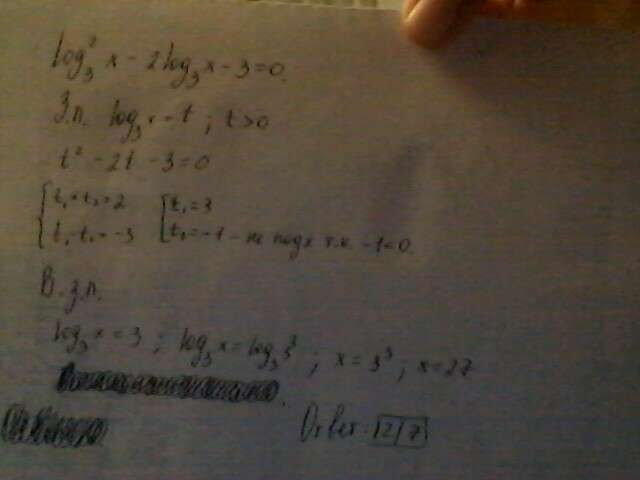 log₃² x - 2log₃ x - 3 = 0.
З.п. log₃ x = t ; t > 0
t² - 2t - 3 = 0
{ t₁ + t₂ = 2 [ t₁ = 3
{ t₁ · t₂ = -3 [ t₂ = -1 - не подх т.к. -1 < 0.
В.з.п.
log₃ x = 3 ; log₃ x = log₃ 3³ ; x = 3³ ; x = 27
Ответ: 27